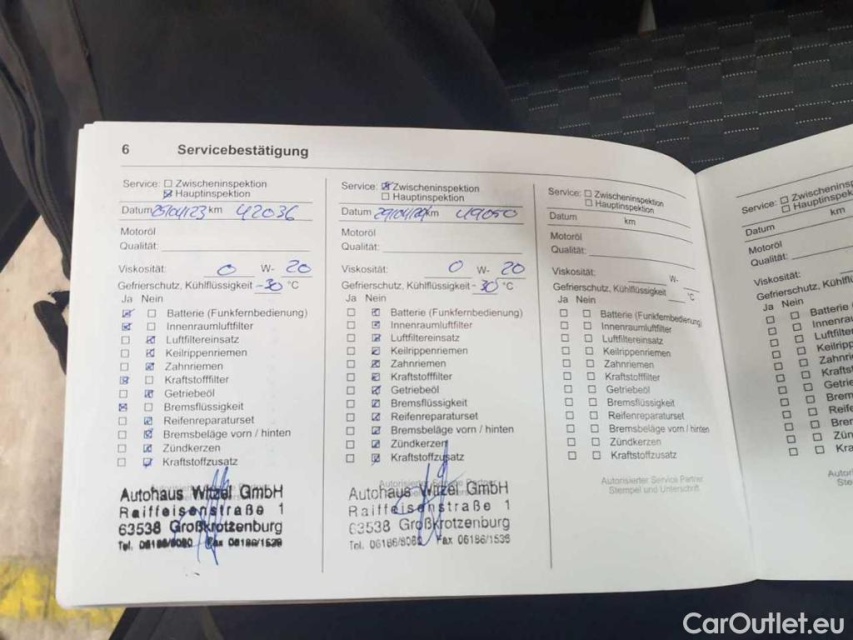 6 Servicebestätigung
Service: Zwischeninspektion
Hauptinspektion
Datum 25/04/23 km 42036
Motoröl
Qualität:
Viskosität: 0 W- 20
Gefrierschutz, Kühlflüssigkeit -30 °C
Ja Nein
Batterie (Funkfernbedienung)
Innenraumluftfilter
Luftfiltereinsatz
Keilrippenriemen
Zahnriemen
Kraftstofffilter
Getriebeöl
Bremsflüssigkeit
Reifenreparaturset
Bremsbeläge vorn / hinten
Zündkerzen
Kraftstoffzusatz
Autohaus Witzel GmbH
Raiffeisenstraße 1
63538 Großkrotzenburg
Tel. 06186/8080 Fax 06186/1536
Service: Zwischeninspektion
Hauptinspektion
Datum 29/04/24 km 49050
Motoröl
Qualität:
Viskosität: 0 W- 20
Gefrierschutz, Kühlflüssigkeit -30 °C
Ja Nein
Batterie (Funkfernbedienung)
Innenraumluftfilter
Luftfiltereinsatz
Keilrippenriemen
Zahnriemen
Kraftstofffilter
Getriebeöl
Bremsflüssigkeit
Reifenreparaturset
Bremsbeläge vorn / hinten
Zündkerzen
Kraftstoffzusatz
Autohaus Witzel GmbH
Raiffeisenstraße 1
63538 Großkrotzenburg
Tel. 06186/8080 Fax 06186/1536
Service: Zwischeninspektion
Hauptinspektion
Datum km
Motoröl
Qualität:
Viskosität: W-
Gefrierschutz, Kühlflüssigkeit °C
Ja Nein
Batterie (Funkfernbedienung)
Innenraumluftfilter
Luftfiltereinsatz
Keilrippenriemen
Zahnriemen
Kraftstofffilter
Getriebeöl
Bremsflüssigkeit
Reifenreparaturset
Bremsbeläge vorn / hinten
Zündkerzen
Kraftstoffzusatz
Autorisierter Service Partner
Stempel und Unterschrift
Service: Zwischenins
Hauptinspekt
Datum km
Motoröl
Qualität:
Viskosität:
Gefrierschutz, Kühlfl
Ja Nein
Batterie
Innenrau
Luftfilter
Keilripp
Zahnri
Krafts
Getrie
Brem
Reife
Bre
Zün
Kra
CarOutlet.eu